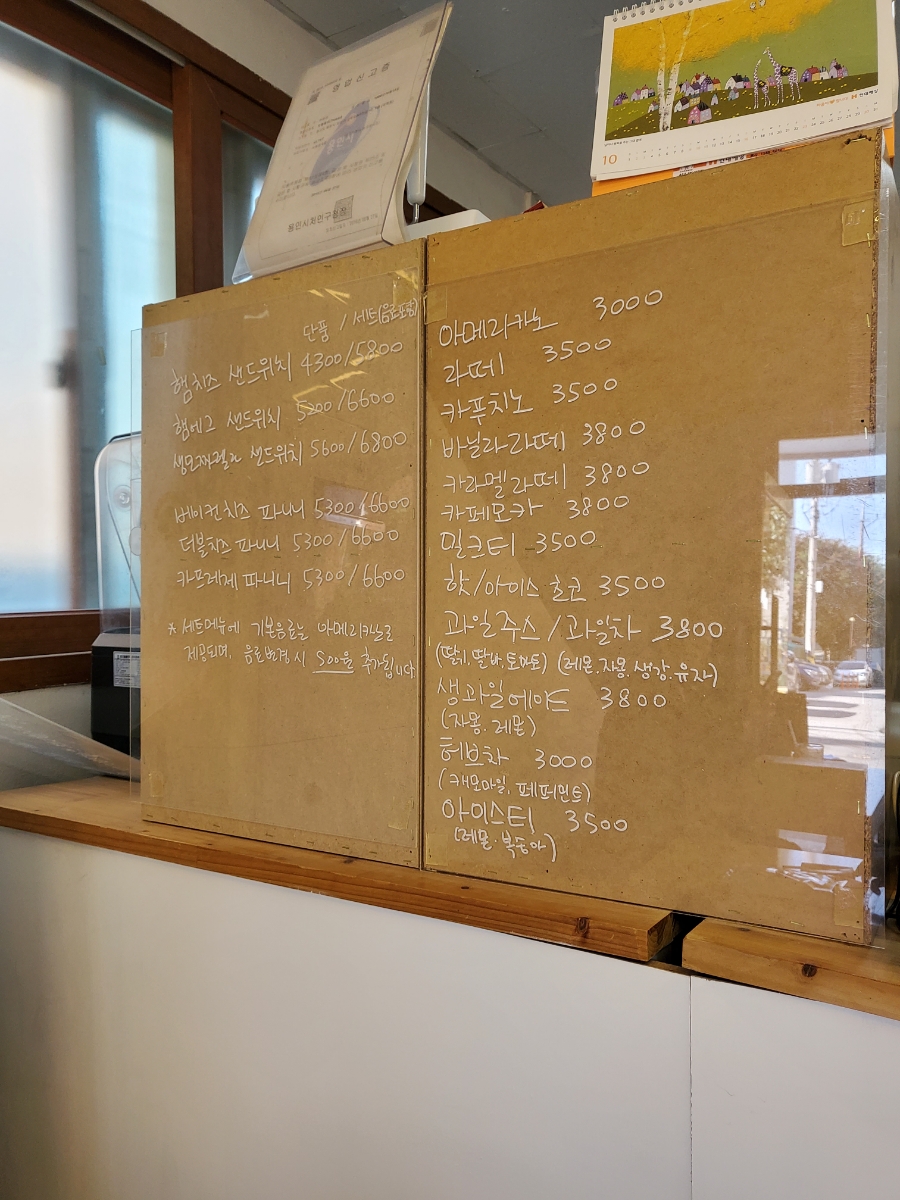 영업신고증
용인시처인구청장
10
현대해상
단품 / 세트(음료포함)
햄치즈 샌드위치 4300/5800
햄에그 샌드위치 5200/6600
생모짜렐라 샌드위치 5600/6800
베이컨치즈 파니니 5300/6600
더블치즈 파니니 5300/6600
카프레제 파니니 5300/6600
* 세트메뉴에 기본음료는 아메리카노로
제공되며, 음료변경시 500원 추가됩니다
아메리카노 3000
라떼 3500
카푸치노 3500
바닐라라떼 3800
카라멜라떼 3800
카페모카 3800
밀크티 3500
핫/아이스 초코 3500
과일주스/과일차 3800
(딸기, 딸바, 토마토) (레몬.자몽.생강.유자)
생과일에이드 3800
(자몽.레몬)
허브차 3000
(캐모마일, 페퍼민트)
아이스티 3500
(레몬.복숭아)